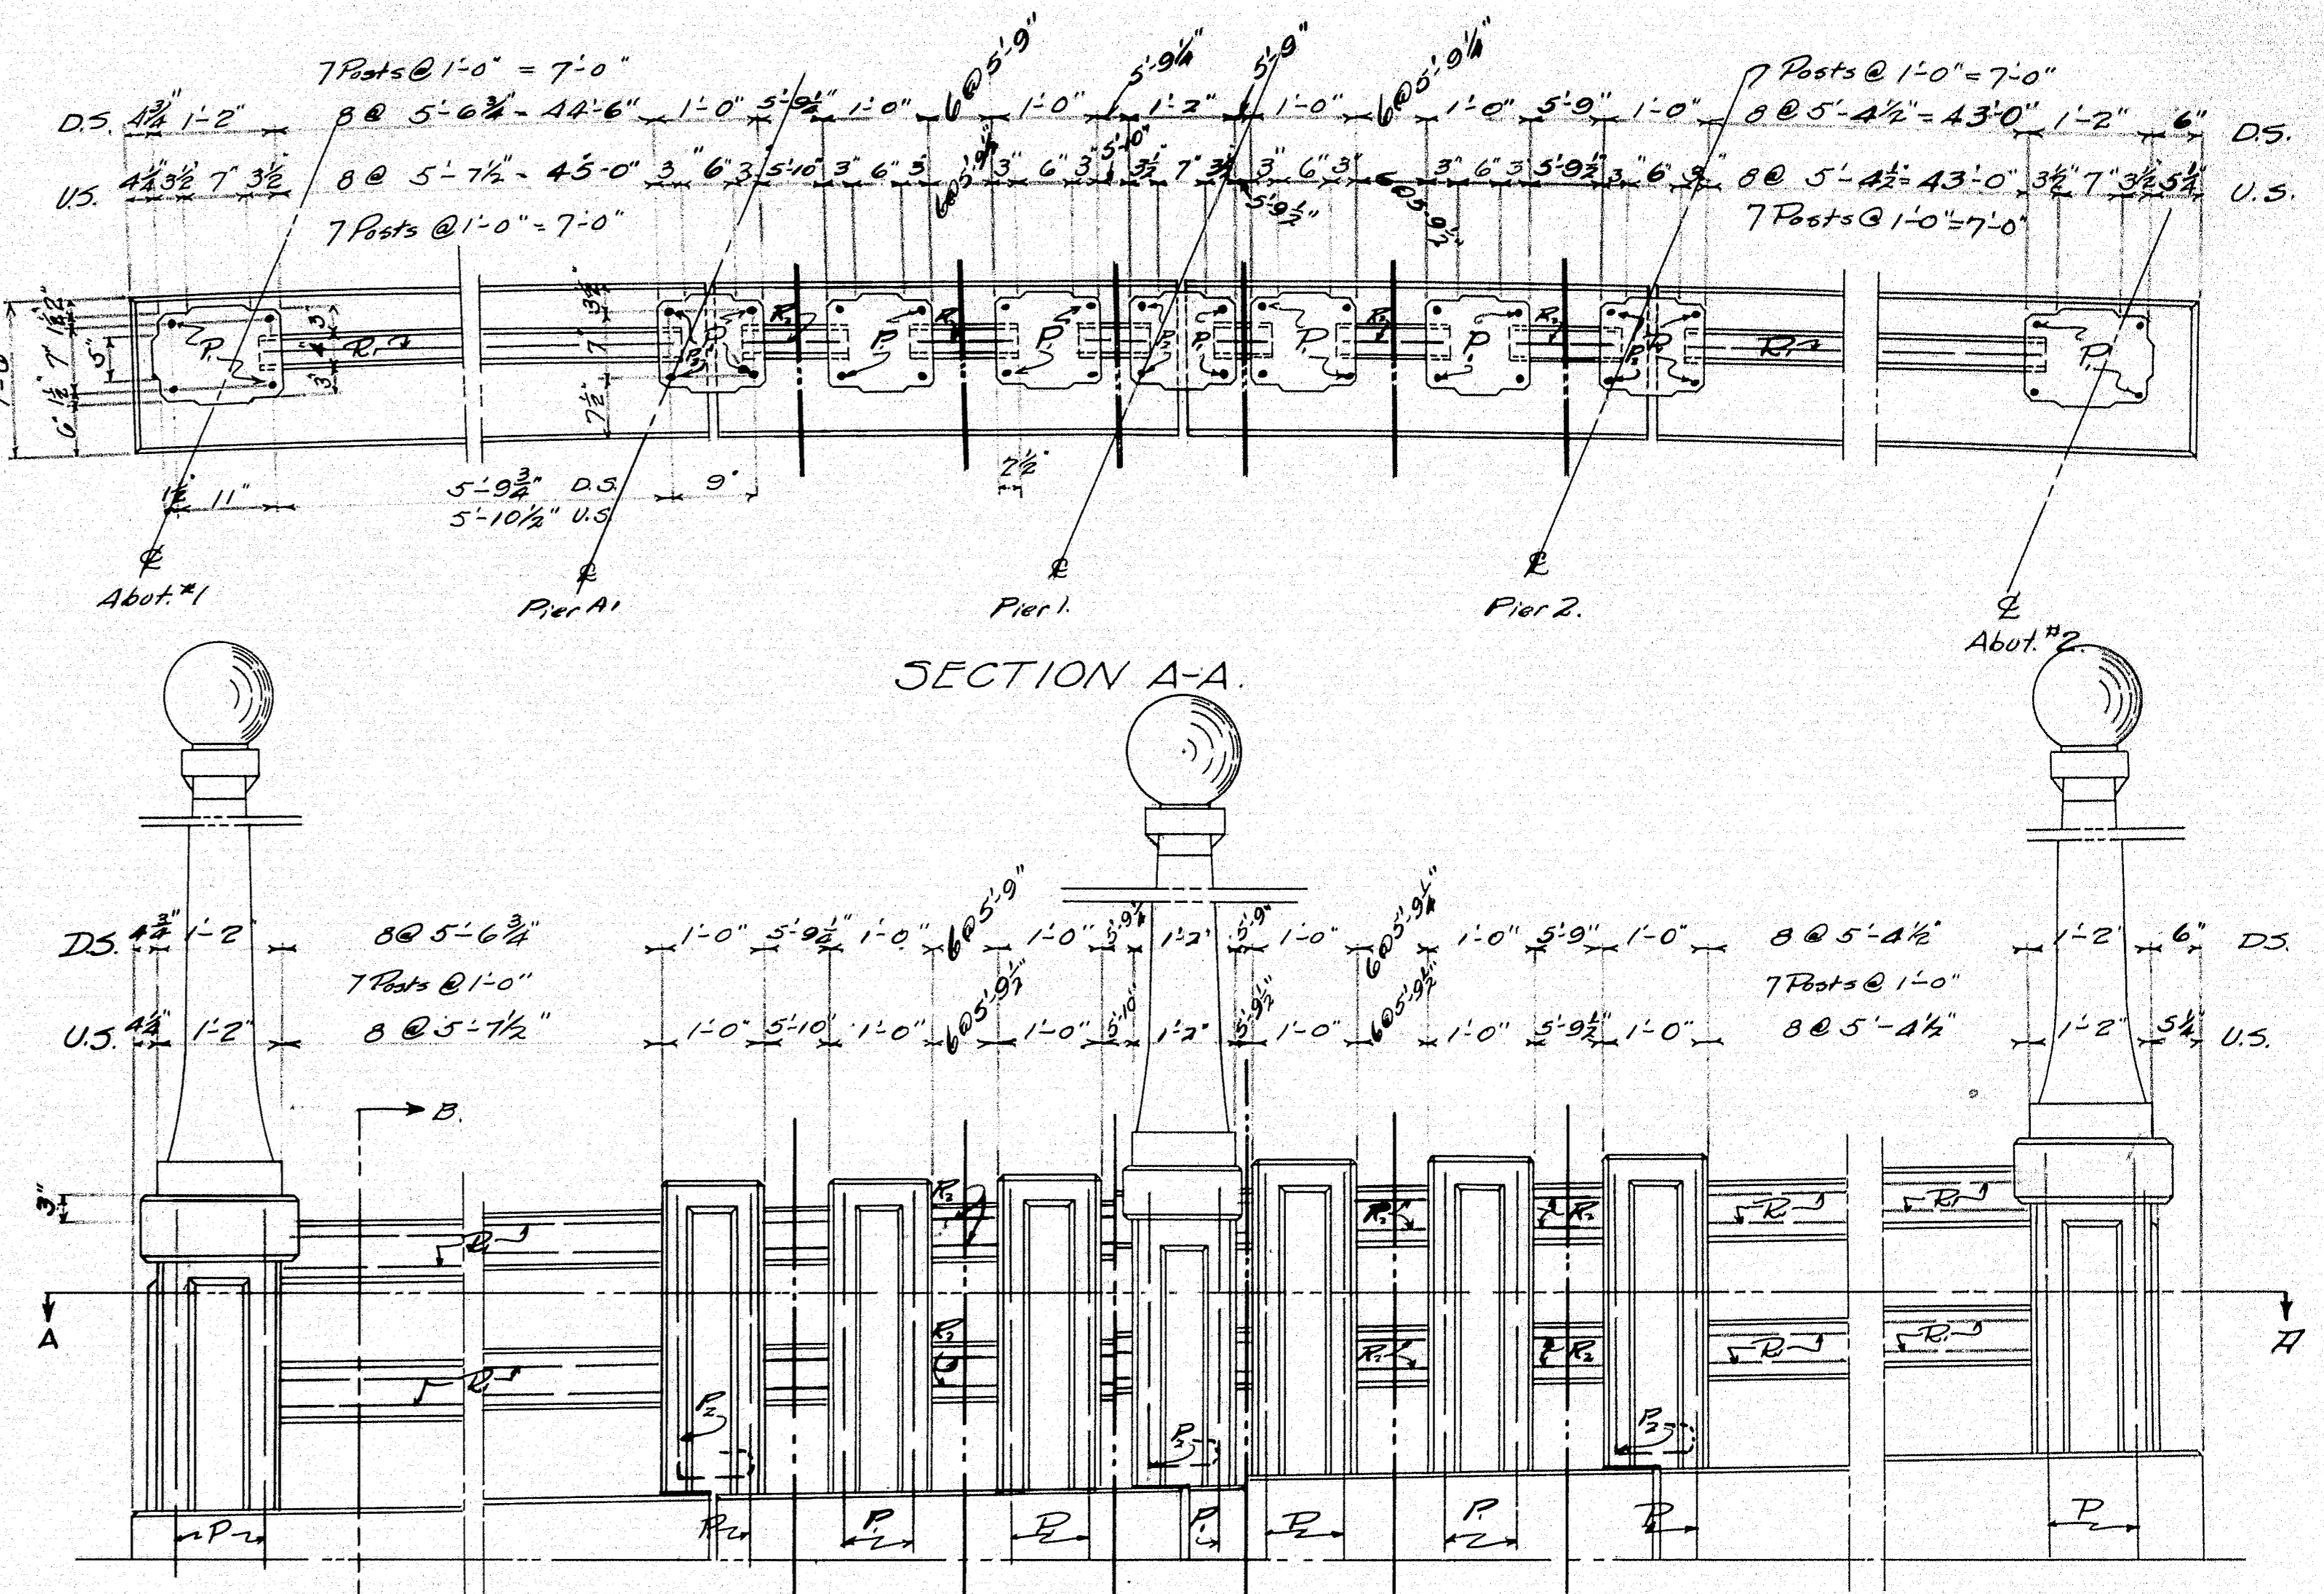 7 Posts @ 1'-0" = 7'-0"
6@5'-9"
5'-9¼"
5'-9"
6@5'-9¼"
7 Posts @ 1'-0" = 7'-0"
D.S. 4¾" 1'-2" 8 @ 5'-6¾" - 44'-6" 1'-0" 5'-9¼" 1'-0" 1'-0" 1'-2" 1'-0" 1'-0" 5'-9" 1'-0" 8 @ 5'-4½" = 43'-0" 1'-2" 6" D.S.
U.S. 4¼" 3½" 7" 3½" 8 @ 5'-7½" - 45'-0" 3" 6" 3" 5'-10" 3" 6" 3" 6@5'-9½" 3" 6" 3" 5'-10" 3½" 7" 3½" 5'-9½" 3" 6" 3" 6@5'-9½" 3" 6" 3" 5'-9½" 3" 6" 3" 8 @ 5'-4½" = 43'-0" 3½" 7" 3½" 5¼" U.S.
7 Posts @ 1'-0" = 7'-0"
7 Posts @ 1'-0" = 7'-0"
6" 1½" 7" 1½" 2"
5"
3" 4" 3"
7½" 7" 3½"
P₁ R₁ P₂ P R₂ P₁ R₂ P₁ P₂ P₁ P₁ R₂ P R₂ P₂ P R₁ P₁
1½" 11"
5'-9¾" D.S.
5'-10½" U.S.
9"
2½"
℄ Abut. #1
℄ Pier A1
℄ Pier 1.
℄ Pier 2.
℄ Abut. #2.
SECTION A-A.
D.S. 4¾" 1'-2" 8 @ 5'-6¾" 1'-0" 5'-9¼" 1'-0" 6@5'-9" 1'-0" 5'-9¼" 1'-2" 5'-9" 1'-0" 6@5'-9¼" 1'-0" 5'-9" 1'-0" 8 @ 5'-4½" 1'-2" 6" D.S.
7 Posts @ 1'-0"
7 Posts @ 1'-0"
U.S. 4¼" 1'-2" 8 @ 5'-7½" 1'-0" 5'-10" 1'-0" 6@5'-9½" 1'-0" 5'-10" 1'-2" 5'-9½" 1'-0" 6@5'-9½" 1'-0" 5'-9½" 1'-0" 8 @ 5'-4½" 1'-2" 5¼" U.S.
B.
3"
R₁ R₂ R₂ R₂ R₁ R₁
A A
R₁ R₂ R₂ R₂ R₁ R₁
P₂ P₂ P₂
P₁ P₁ P₁ P₁ P₁ P₁ P₁ P₁ P₁